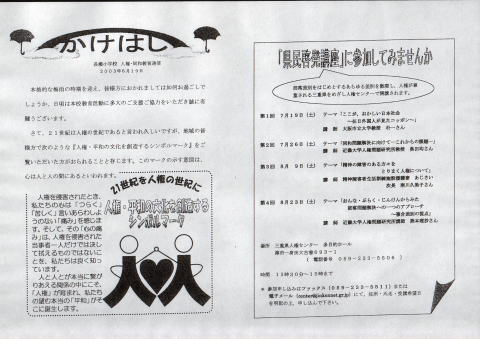 かけはし
長郷小学校 人権・同和教育通信
2003年6月19日
本格的な梅雨の時期を迎え、皆様方におかれましては如何お過ごしで
しょうか。日頃は本校教育活動に多大のご支援ご協力をいただき誠に有
難うございます。
さて、21世紀は人権の世紀であると言われ久しいですが、地域の皆
様方で次のような『人権・平和の文化を創造するシンボルマーク』をご
覧いただいた方がおられることと存じます。このマークの示す意図は、
心は人と人の間にあるといわれます。
人権を侵害されたとき、
私たちの心は「つらく」
「苦しく」言いあらわしよ
うのない「痛み」を感じま
す。そして、その「心の痛
み」は、人権を侵害された
当事者一人だけでは決し
て拭えるものではないこ
とを、私たちは良く知っ
ています。
人と人とが本当に繋が
りあえる関係の中にこそ、
「人権」が育まれ、私たち
の望む本当の「平和」がそ
こに誕生します。
21世紀を人権の世紀に
人権・平和の文化を創造する
シンボルマーク
『県民啓発講座』に参加してみませんか
部落差別をはじめとするあらゆる差別を撤廃し、人権が尊
重される三重県をめざし人権センターで開講されます。
第1回 7月19日(土) テーマ「ここが、おかしい日本社会
~在日外国人が見たニッポン~」
講師 大阪市立大学教授 朴一さん
第2回 7月26日(土) テーマ「同和問題解決に向けて~これからの課題~」
講師 近畿大学人権問題研究所教授 奥田均さん
第3回 8月 9日(土) テーマ「精神の障害のある方々を
とりまく人権について」
第4回 8月23日(土) テーマ「おんな・ぶらく・にんげんからみた
講師 近畿大学人権問題研究所講師 熊本理抄さん
場所 三重県人権センター 多目的ホール
津市一身田大古曽693-1
(電話番号 059-233-5504)
時間 13時30分~15時まで
* 参加申し込みはファックス(059-233-5511)または
を明記の上、申し込んで下さい。